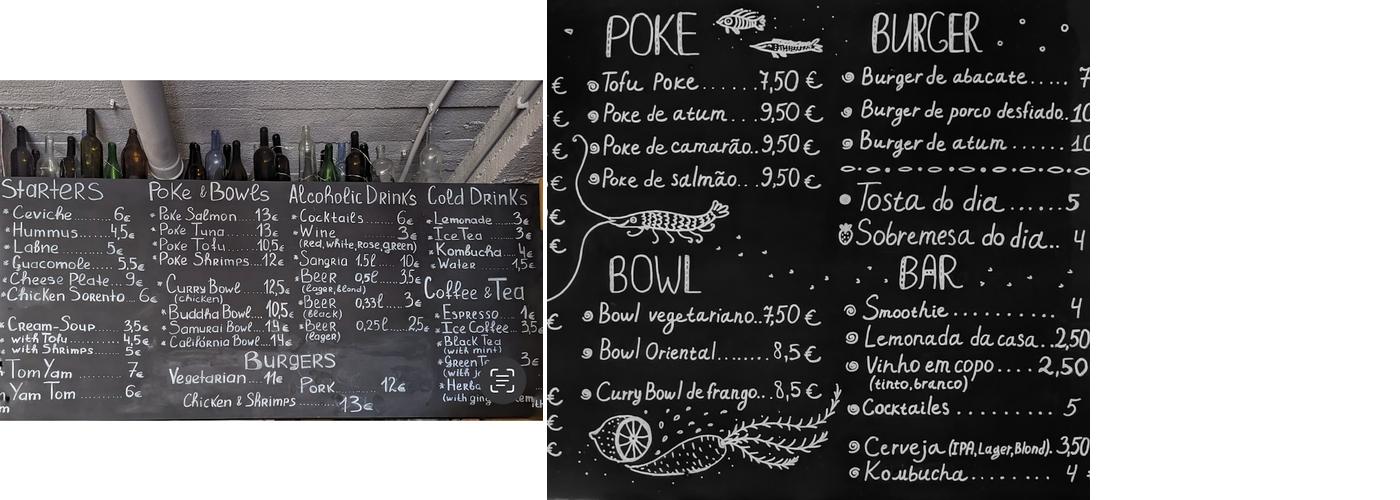 Starters
*Ceviche........6€
*Hummus.......4,5€
*Labne.........5€
*Guacomole.....5,5€
*Cheese Plate...9€
*Chicken Sorento...6€
*Cream-Soup......3,5€
*with Tofu......4,5€
*with Shrimps....5€
*Tom Yam........7€
Yam Tom.......6€
Poke & Bowls
*Poke Salmon...13€
*Poke Tuna.....13€
*Poke Tofu.....10,5€
*Poke Shrimps...12€
*Curry Bowl.....12,5€
(chicken)
*Buddha Bowl....10,5€
*Samurai Bowl...14€
*California Bowl...14€
Alcoholic Drinks
*Cocktails.......6€
*Wine........3€
(red,white,rose,green)
*Sangria 1.5l...10€
*Beer 0,5l....3,5€
(lager,blond)
*Beer 0,33l...3€
(black)
*Beer 0,25l....2,5€
(lager)
Burgers
Vegetarian....11€
Pork......12€
Chicken & Shrimps..........13€
Cold Drinks
*Lemonade.....3€
*Ice Tea......3€
*Kombucha....4€
*Water......1,5€
Coffee & Tea
*Espresso......1€
*Ice Coffee...3,5
*Black Tea
(with mint)
*Green T
3€
*Herba
(with ging
POKE
Tofu Poke.......7,50 €
Poke de atum...9,50 €
Poke de camarão..9,50 €
Poke de salmão...9,50 €
BOWL
Bowl vegetariano..7,50 €
Bowl Oriental........8,5 €
Curry Bowl de frango...8,5 €
BURGER
Burger de abacate..... 7
Burger de porco desfiado..10
Burger de atum ..... 10
Tosta do dia......5
Sobremesa do dia.. 4
BAR
Smoothie............. 4
Lemonada da casa..2,50
Vinho em copo....2,50
(tinto,branco)
Cocktailes .......... 5
Cerveja (IPA,Lager,Blond). 3,50
Kombucha......... 4